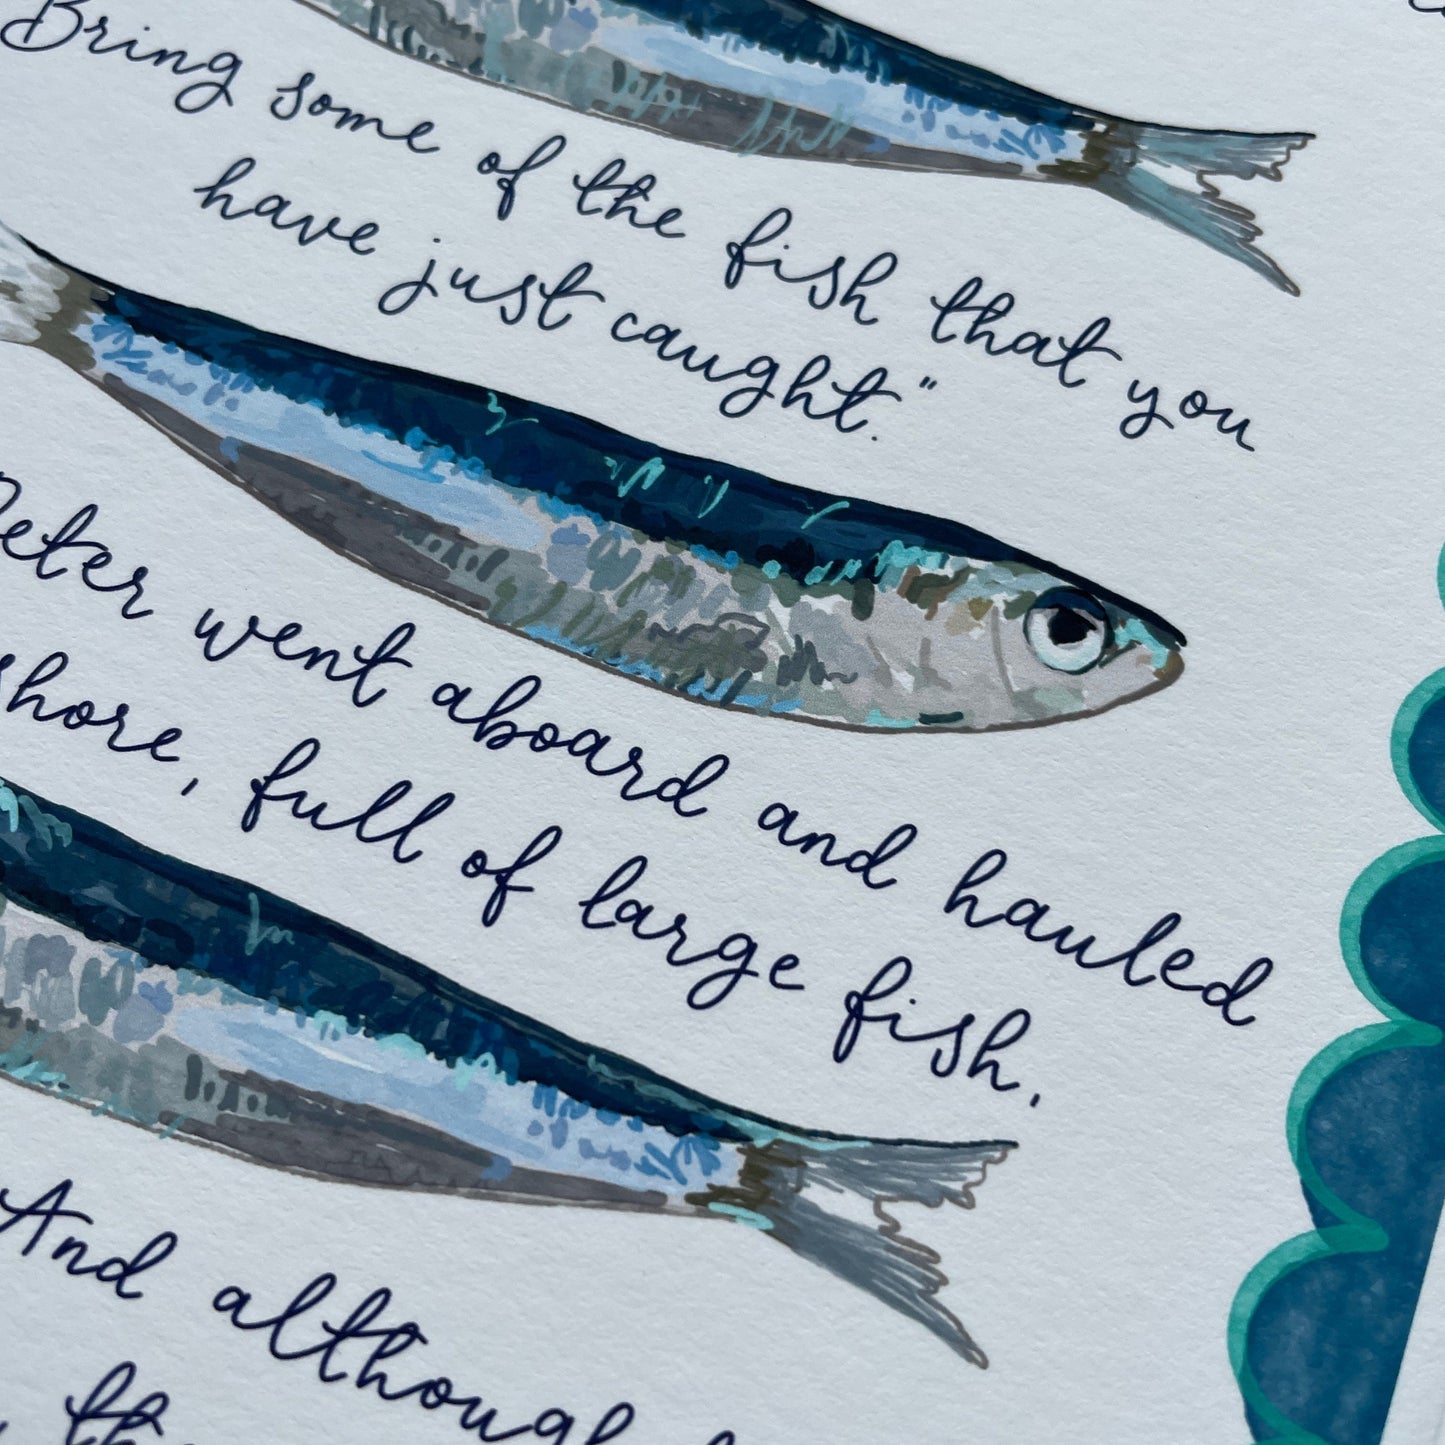 Bring some of the fish that you
have just caught."
Peter went aboard and hauled
shore, full of large fish,
And although